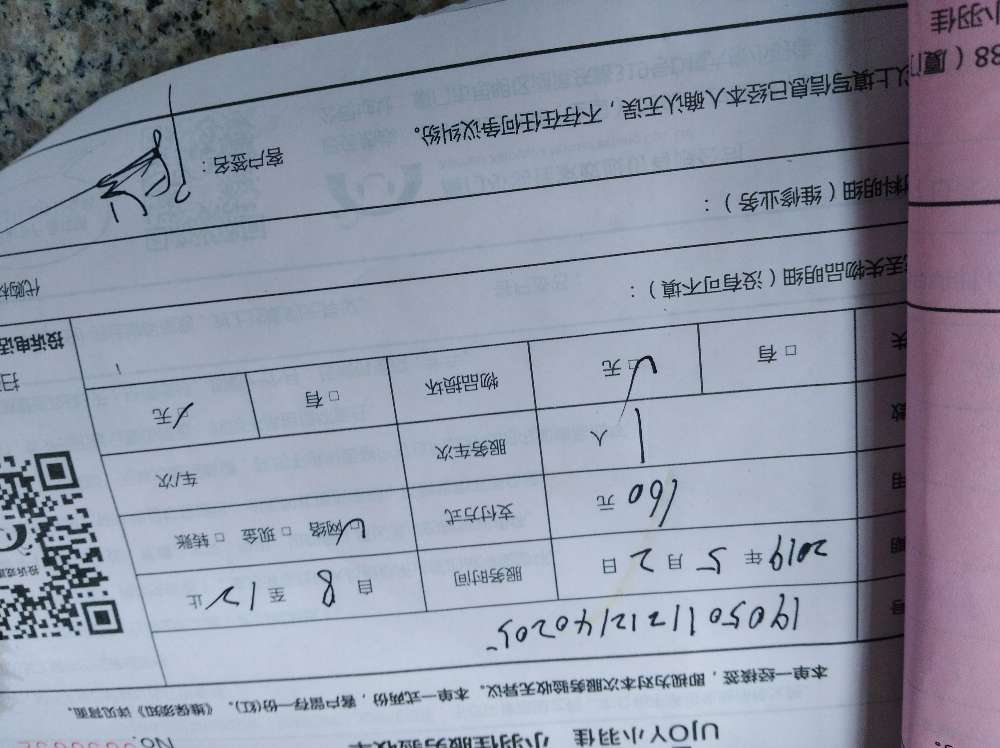 UJOY小羽佳 小羽佳服务验收单
No.
本单一经接签，即视为对本次服务验收无异议。本单一式两份，客户留存一份(红)。《维保须知》详见背面。
号 1905011212140205
期 2019 年 5 月 2 日 服务时间 自 8 至 12 止
用 160 元 支付方式 □网络 □现金 □转账
数 1 人 服务车次 车/次
失 □有 □无 物品损坏 □有 □无
投诉电话
扫
投诉或
丢失物品明细（没有可不填）：
代购材
材料明细（维修业务）：
以上填写信息已经本人确认无误，不存在任何争议纠纷。
客户签名：
38（厦门
小羽佳